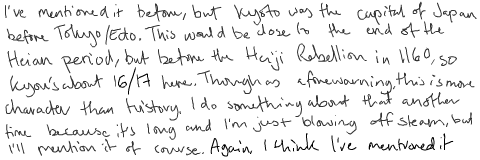 I've mentioned it before, but Kyoto was the capital of Japan
before Tokyo/Edo. This would be close to the end of the
Heian period, but before the Heiji Rebellion in 1160, so
Kyou's about 16/17 here. Though as a forewarning, this is more
character than history. I do something about that another
time because it's long and I'm just blowing off steam, but
I'll mention it of course. Again, I think I've mentioned it